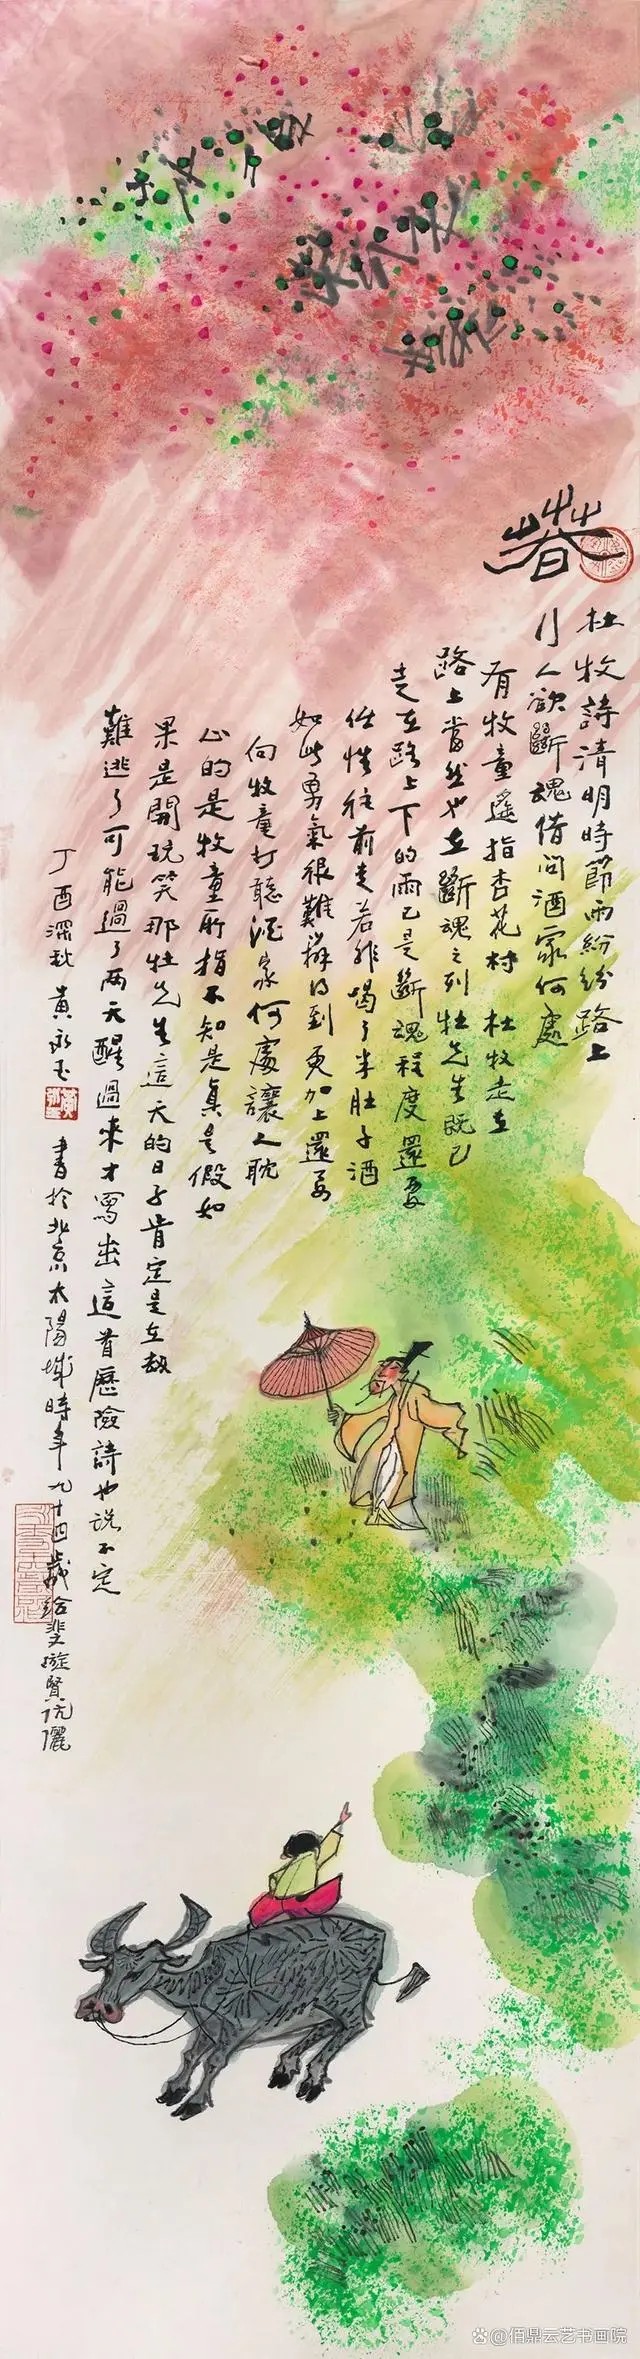 春
杜牧詩清明時節雨紛紛路上
行人欲斷魂借問酒家何處
有牧童遥指杏花村 杜牧走在
路上當然也在斷魂之列杜先生既已
走在路上下的雨已是斷魂程度還要
任性往前走若非喝了半肚子酒
如此勇氣很難辦得到更加上還要
向牧童打聽酒家何處讓人耽
心的是牧童所指不知是真是假如
果是開玩笑那杜先生這天的日子肯定是在劫
難逃了可能過了两天醒過來才寫出這首歷險詩也说不定
丁酉深秋黄永玉 書於北京太陽城時年九十四歲給斐漩賢伉儷
@佰鼎云艺书画院